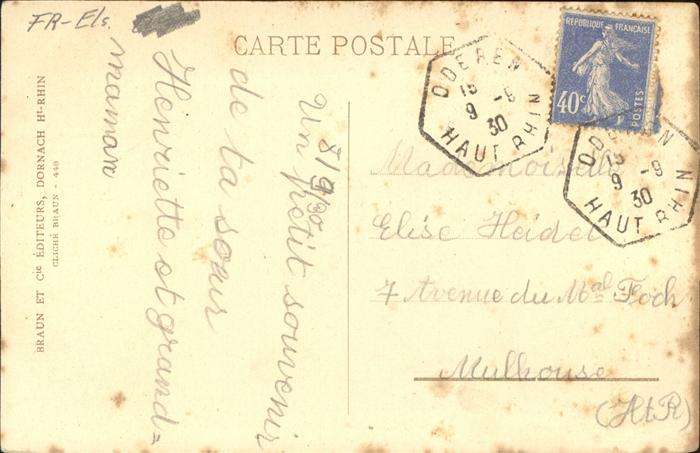 FR-Els.
CARTE POSTALE
8/9/30
Un petit souvenir
de ta sœur
Henriette et grand=
maman
Mademoiselle
Elise Heidel
7 Avenue du Mal Foch
Mulhouse
(Ht R)
RÉPUBLIQUE FRANÇAISE
40c
POSTES
ODEREN
9 -9
30
HAUT RHIN
ODEREN
9 -9
30
HAUT RHIN
BRAUN ET Cie ÉDITEURS, DORNACH Ht-RHIN
CLICHÉ BRAUN - 440